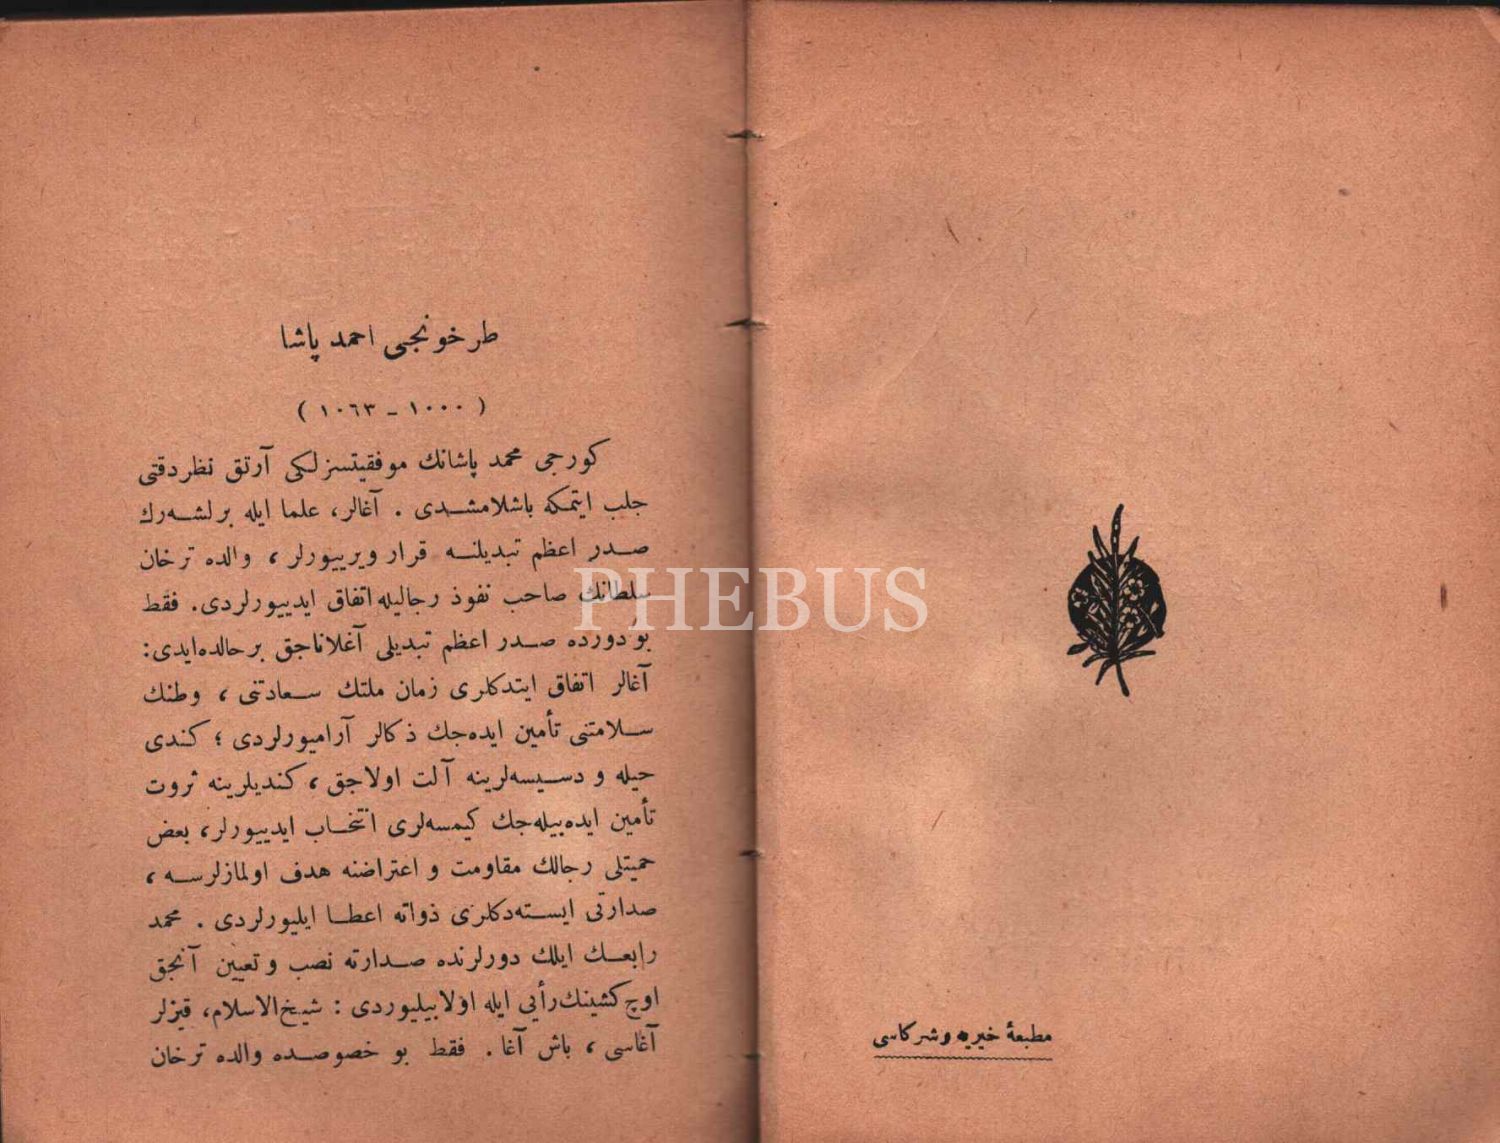 مطبعهٔ خیریه و شرکاسی
طرخونجی احمد پاشا
( ١٠٠٠ – ١٠٦٣ )
کورجی محمد پاشانك موفقیتسزلکی آرتق نظردقتی
جلب ایتمکه باشلامشدی . آغالر، علما ایله برلشه‌رك
صدر اعظم تبدیلنه قرار ویرییورلر ، والده ترخان
سلطانك صاحب نفوذ رجالیله اتفاق ایدییورلردی. فقط
بو دورده صدر اعظم تبدیلی آغلاناجق برحالده‌ایدی:
آغالر اتفاق ایتدکلری زمان ملتك سعادتنی ، وطنك
سلامتنی تأمین ایده‌جك ذکالر آرامیورلردی ؛ کندی
حیله و دسیسه‌لرینه آلت اولاجق ، کندیلرینه ثروت
تأمین ایده‌بیله‌جك کیمسه‌لری انتخاب ایدییورلر، بعض
حمیتلی رجالك مقاومت و اعتراضنه هدف اولمازلرسه ،
صدارتی ایسته‌دکلری ذواته اعطا ایلیورلردی . محمد
رابعك ایلك دورلرنده صدارته نصب و تعیین آنجق
اوچ کشینك رأیی ایله اولابیلیوردی : شیخ‌الاسلام، قیزلر
آغاسی ، باش آغا . فقط بو خصوصده والده ترخان
PHEBUS